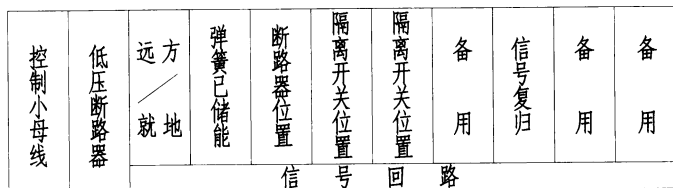 控制小母线
低压断路器
远方/就地
弹簧已储能
断路器位置
隔离开关位置
隔离开关位置
备用
信号复归
备用
备用
信号回路